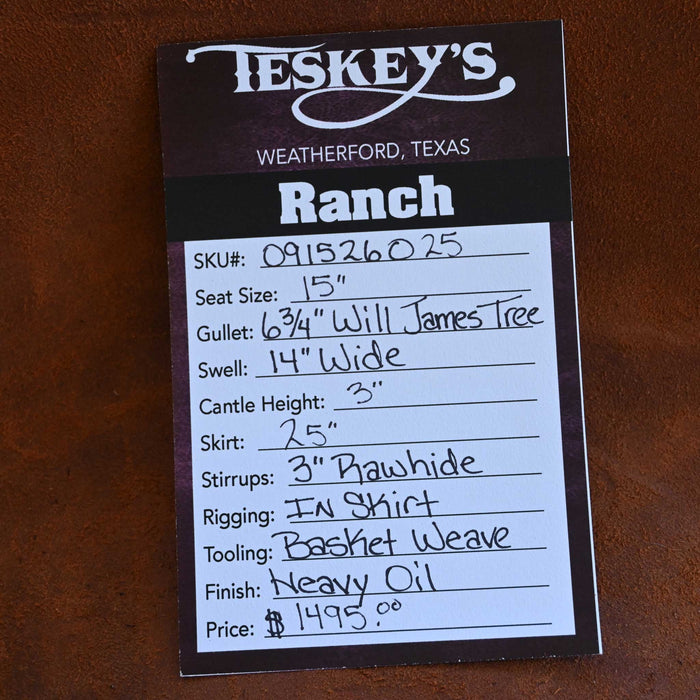 TESKEY'S
WEATHERFORD, TEXAS
Ranch
SKU#: 091526025
Seat Size: 15"
Gullet: 6 3/4" Will James Tree
Swell: 14" Wide
Cantle Height: 3"
Skirt: 25"
Stirrups: 3" Rawhide
Rigging: IN Skirt
Tooling: Basket Weave
Finish: Heavy Oil
Price: $ 1495.00